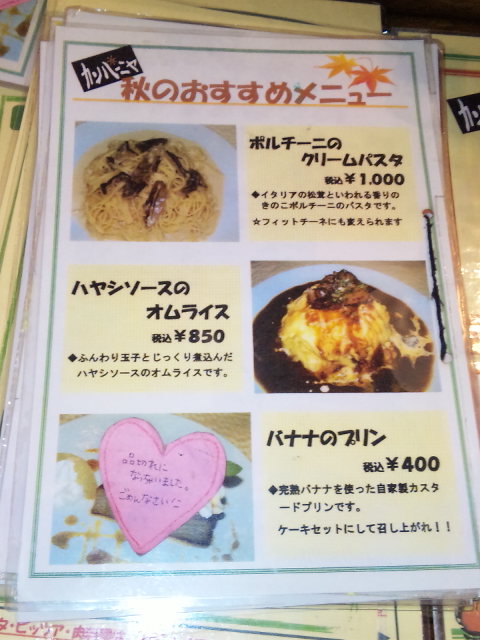 カンパーニャ
秋のおすすめメニュー
ポルチーニの
クリームパスタ
税込￥1.000
◆イタリアの松茸といわれる香りの
きのこポルチーニのパスタです。
☆フィットチーネにも変えられます
ハヤシソースの
オムライス
税込￥850
◆ふんわり玉子とじっくり煮込んだ
ハヤシソースのオムライスです。
品切れに
なっちゃいました。
ごめんなさい
バナナのプリン
税込￥400
◆完熟バナナを使った自家製カスタ
ードプリンです。
ケーキセットにして召し上がれ！！
タ・ピッツア・肉